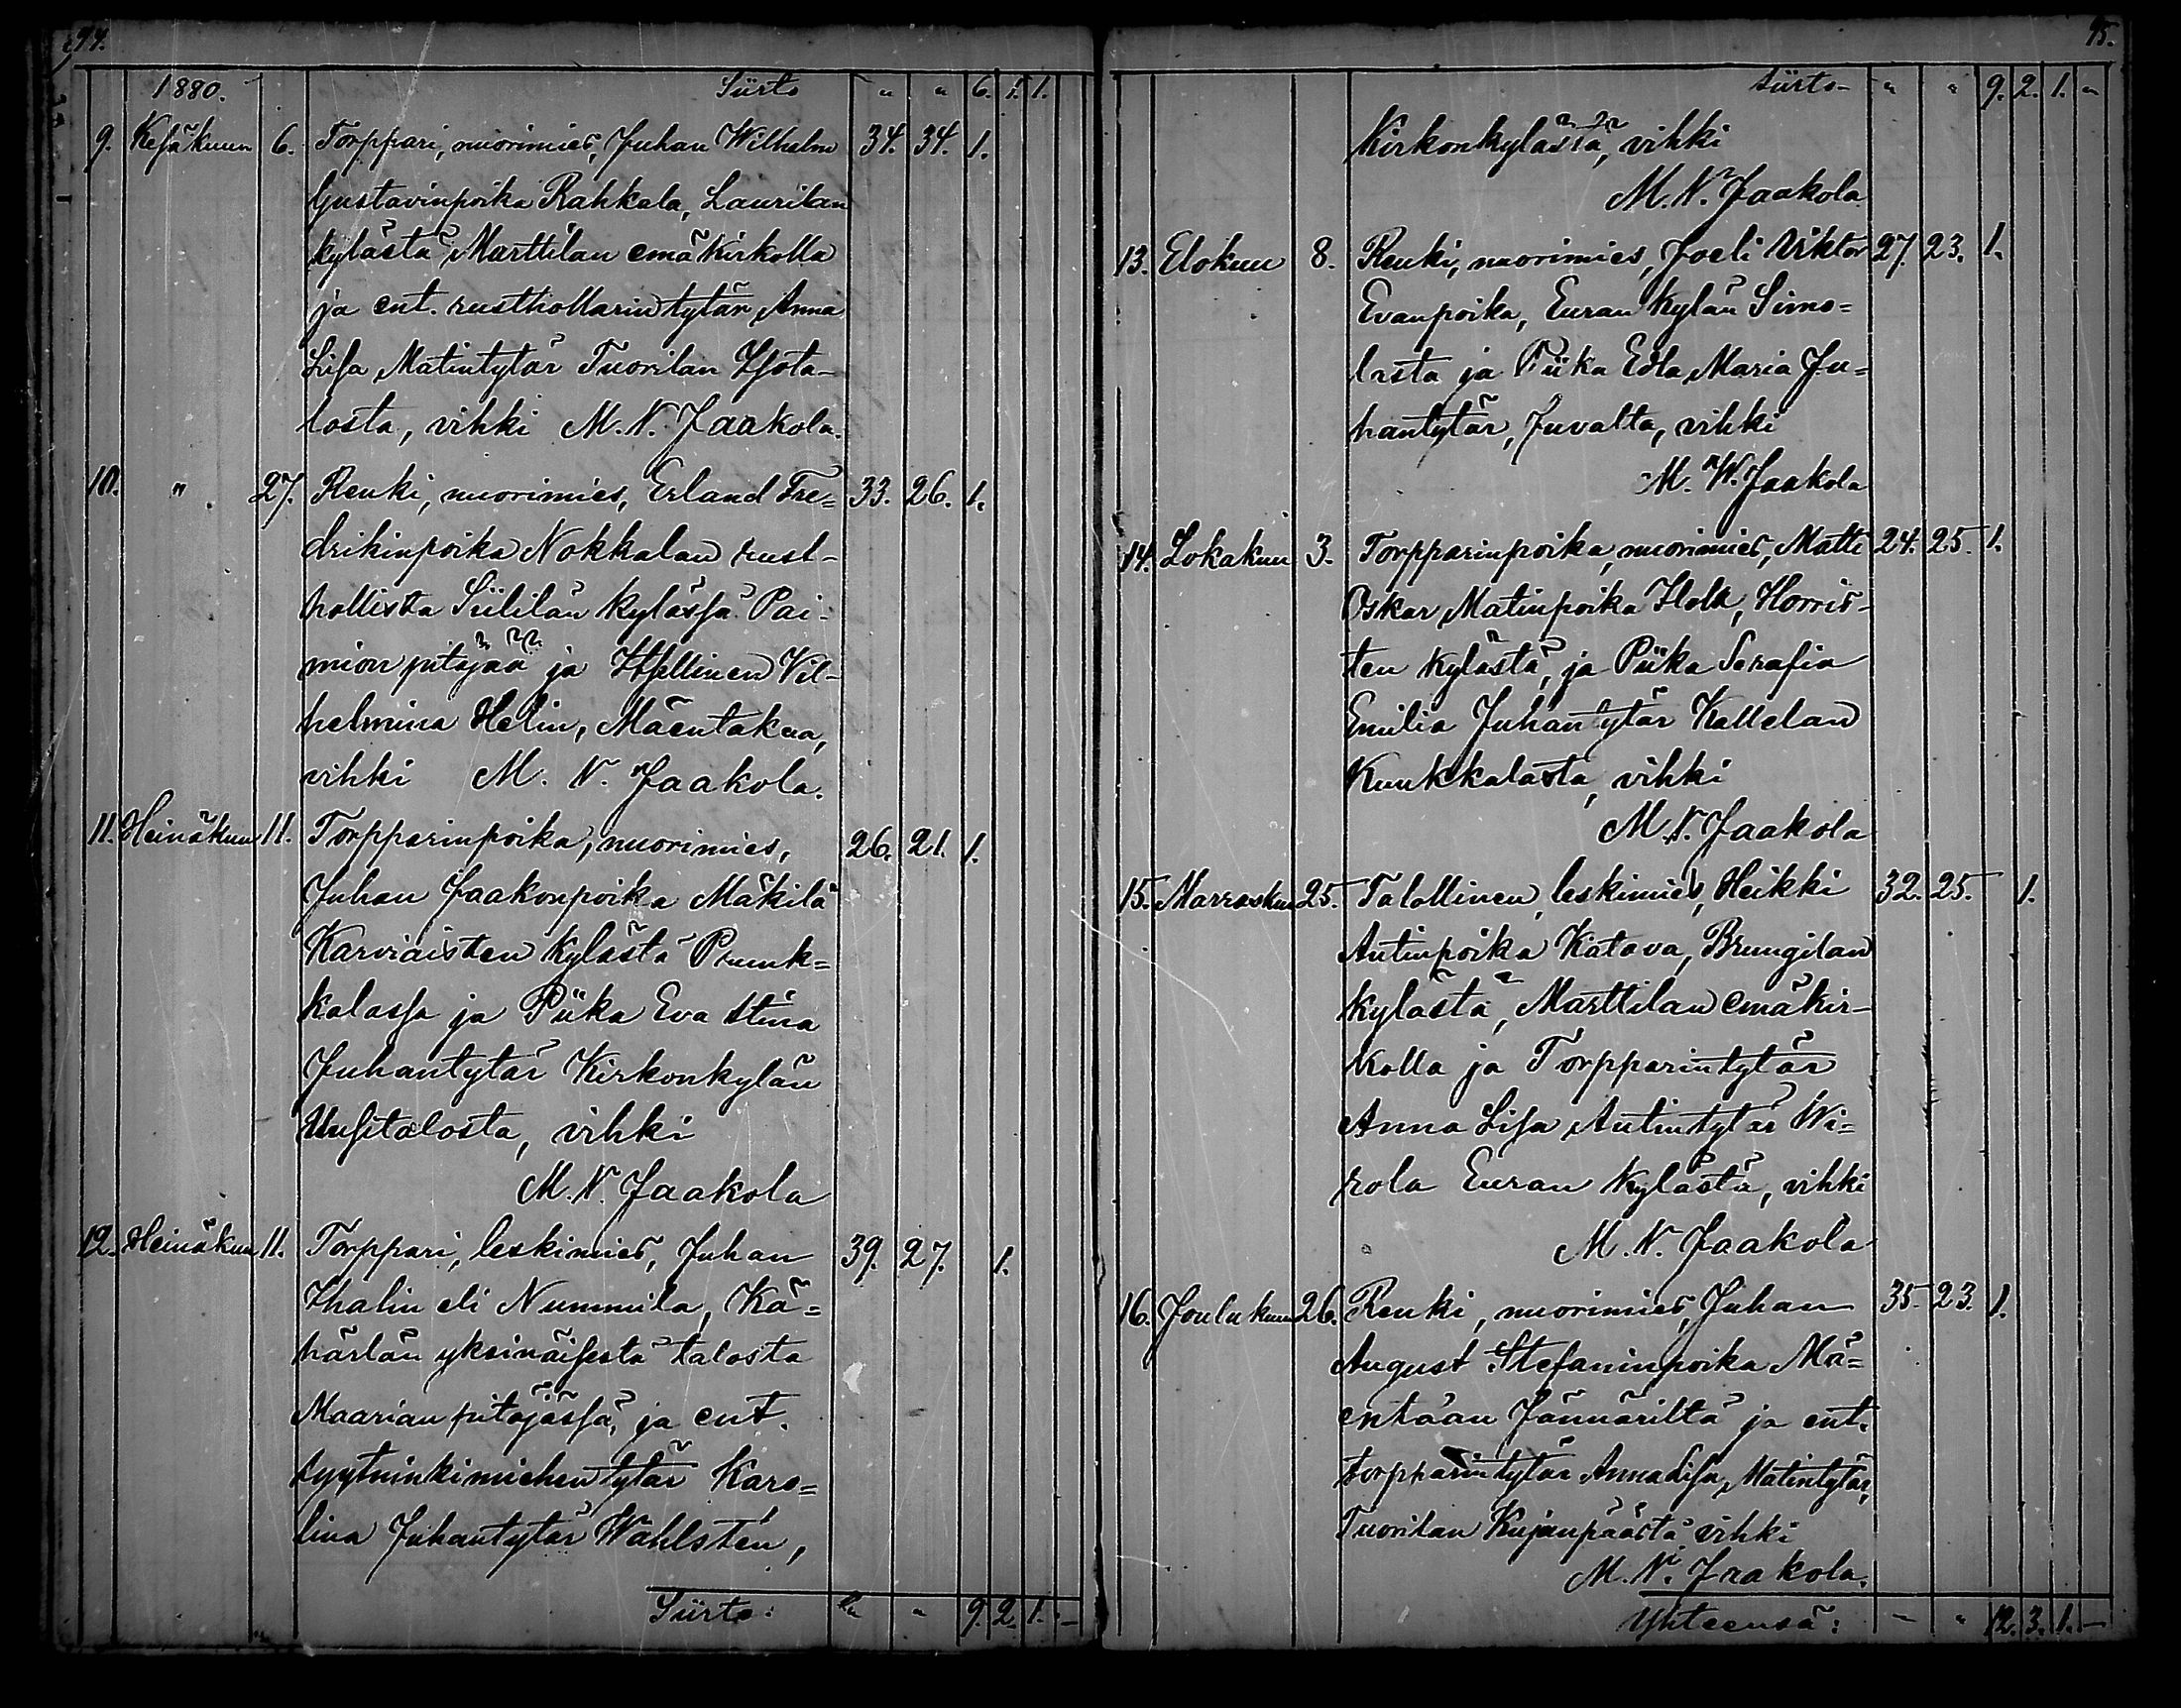 94.
1880. Siirto " " 6. 1. 1.
9. Kesäkuun 6. Torppari, nuorimies, Juhan Wilhelm 34. 34. 1.
Gustavinpoika Rahkala, Laurilan
kylästä Marttilan emäkirkolla
ja ent. rusthollarin tytär Anna
Lisa Matintytär Tuorilan Iso-
losta, vihki M. N. Jaakola.
10. " 27. Renki, nuorimies, Erland Fre= 33. 26. 1.
drikinpoika Nokkalan rust-
hollista Siililän kylässä Pai-
mion pitäjää ja Itsellinen Vil-
helmina Helin, Mäentakaa,
vihki M. N. Jaakola.
11. Heinäkuun 11. Torpparinpoika, nuorimies, 26. 21. 1.
Juhan Jaakonpoika Mäkilä
Karviaisten kylästä Prunk=
kalassa ja Piika Eva Stina
Juhantytär Kirkonkylän
Uusitalosta, vihki
M. N. Jaakola
12. Heinäkuun 11. Torppari, leskimies, Juhan 39. 27. 1.
Thalin eli Nummila, Kä=
härlän yksinäisestä talosta
Maarian pitäjässä, ja ent.
lyytninkimiehen tytär Karo=
lina Juhantytär Wahlsten,
Siirto: " " 9. 2. 1. -
95.
Siirto " " 9. 2. 1. "
Kirkonkylästä, vihki
M. N. Jaakola
13. Elokuu 8. Renki, nuorimies, Joeli Viktor 27. 23. 1.
Evanpoika, Euran kylän Simo=
lasta ja Piika Edla Maria Ju=
hantytär, Juvalta, vihki
M. W. Jaakola
14. Lokakuu 3. Torpparinpoika, nuorimies, Matti 24. 25. 1.
Oskar Matinpoika Holk, Horris-
ten kylästä, ja Piika Serafia
Emilia Juhantytär Kallelan
Kuukkalasta, vihki
M. N. Jaakola
15. Marraskuu 25. Talollinen, leskimies, Heikki 32. 25. 1.
Antinpoika Katava, Prungilan
kylästä, Marttilan emäkir-
kolla ja Torpparintytär
Anna Lisa Antintytär Wi=
rola Euran kylästä, vihki
M. N. Jaakola
16. Joulukuu 26. Renki, nuorimies, Juhan 35. 23. 1.
August Stefaninpoika Mä=
entaan Jännäriltä ja ent.
torpparintytär Anna Lisa Matintytär,
Tuorilan Kujanpäästä vihki
M. N. Jaakola.
Yhteensä: - " 12. 3. 1. -